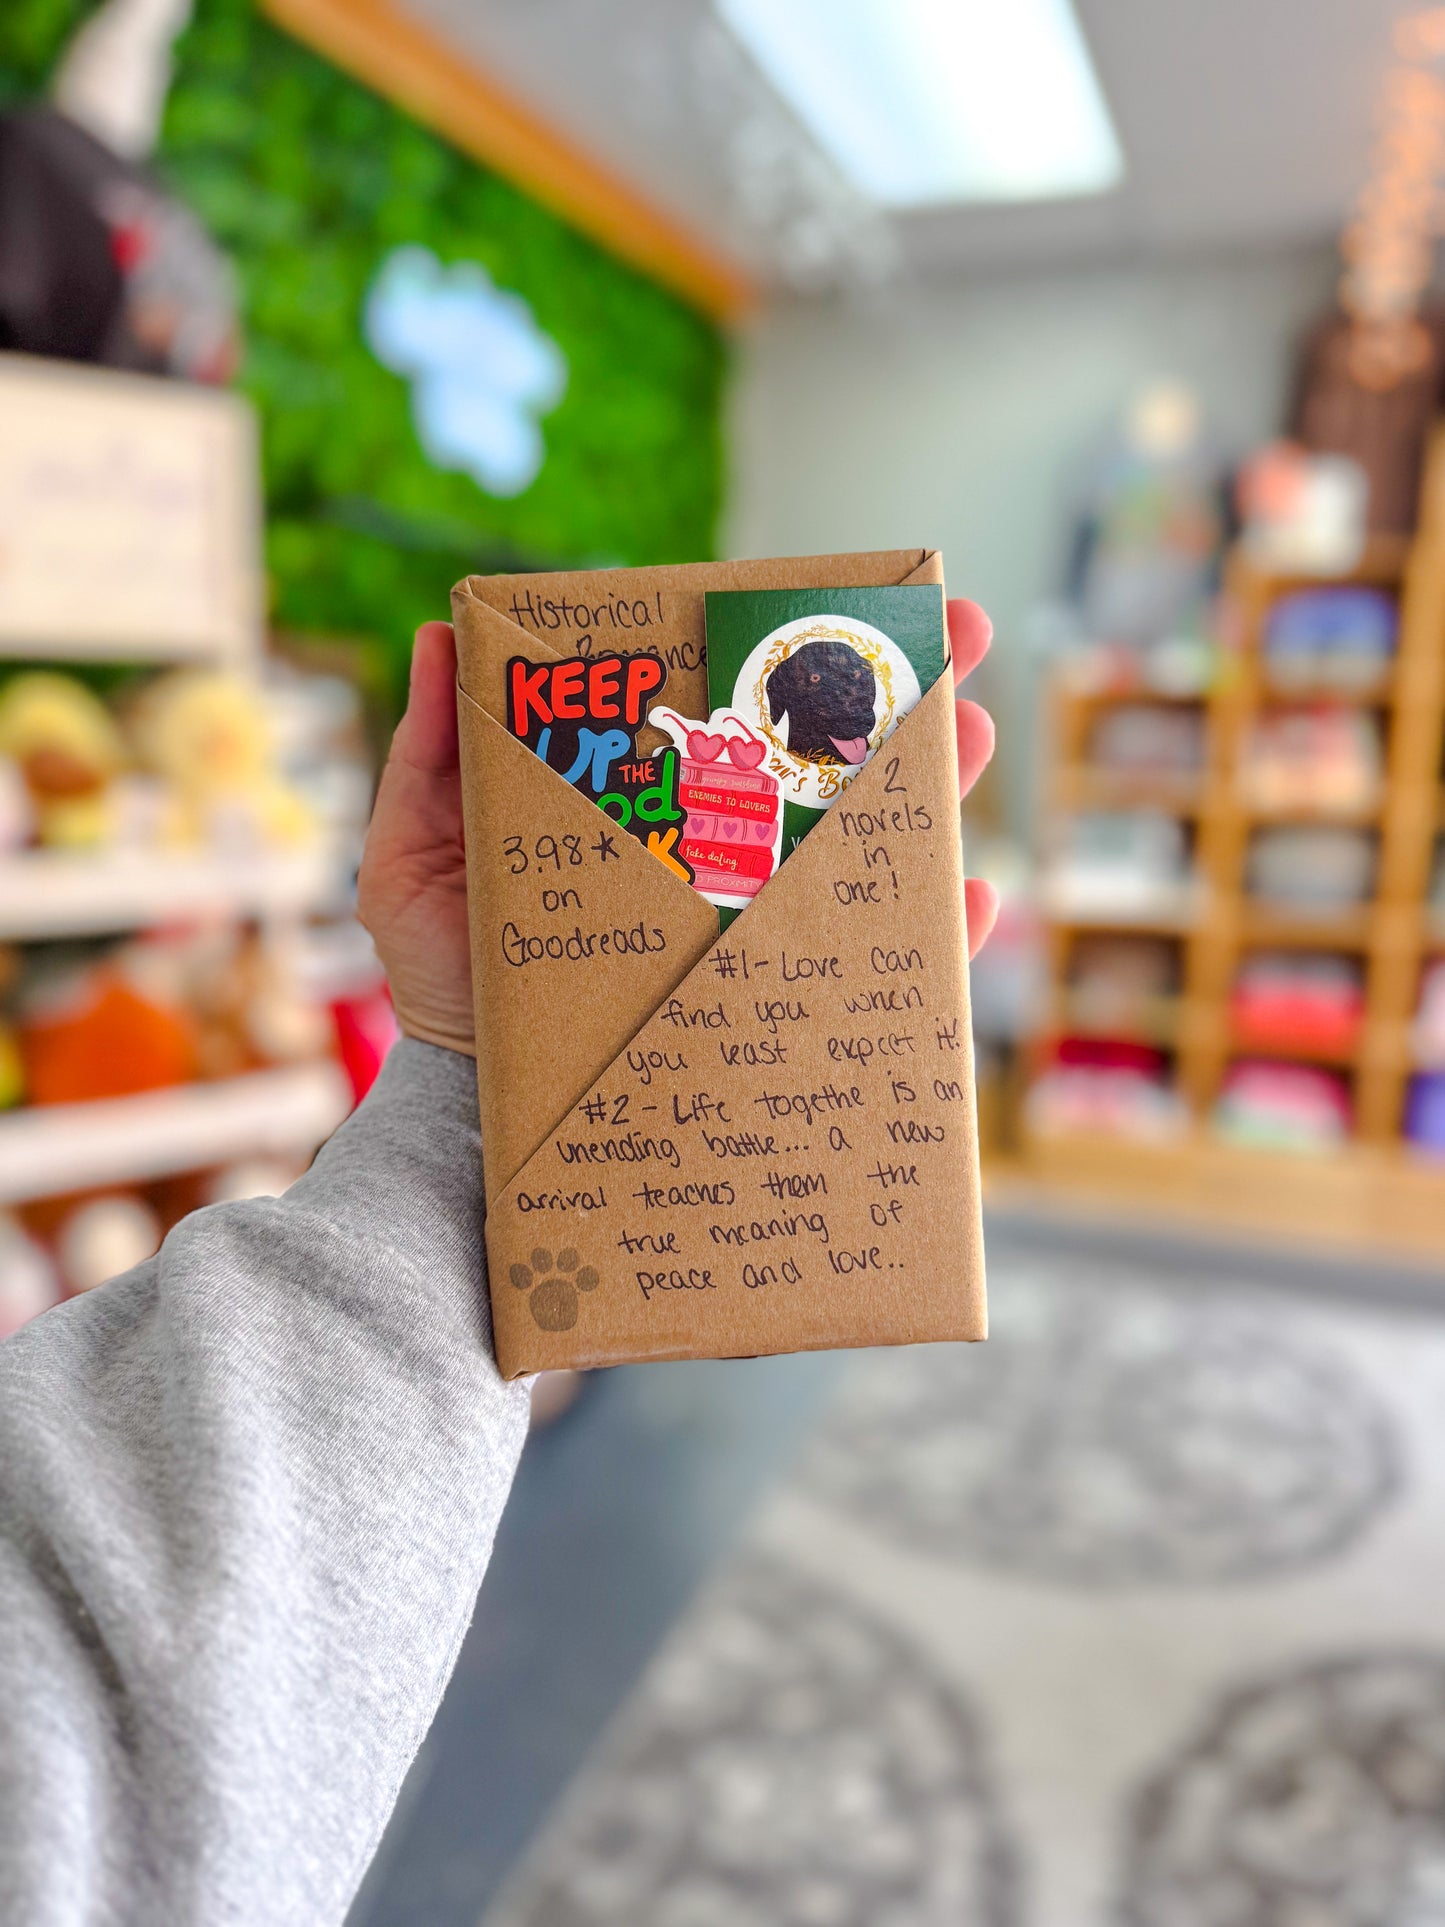 Historical
Romance
KEEP
UP
THE
grumpy sunshine
ENEMIES TO LOVERS
fake dating
PROXIMITY
3.98*
on
Goodreads
2
novels
in
one!
#1- Love can
find you when
you least expect it!
#2 - Life togethe is an
unending battle... a new
arrival teaches them the
true meaning of
peace and love..